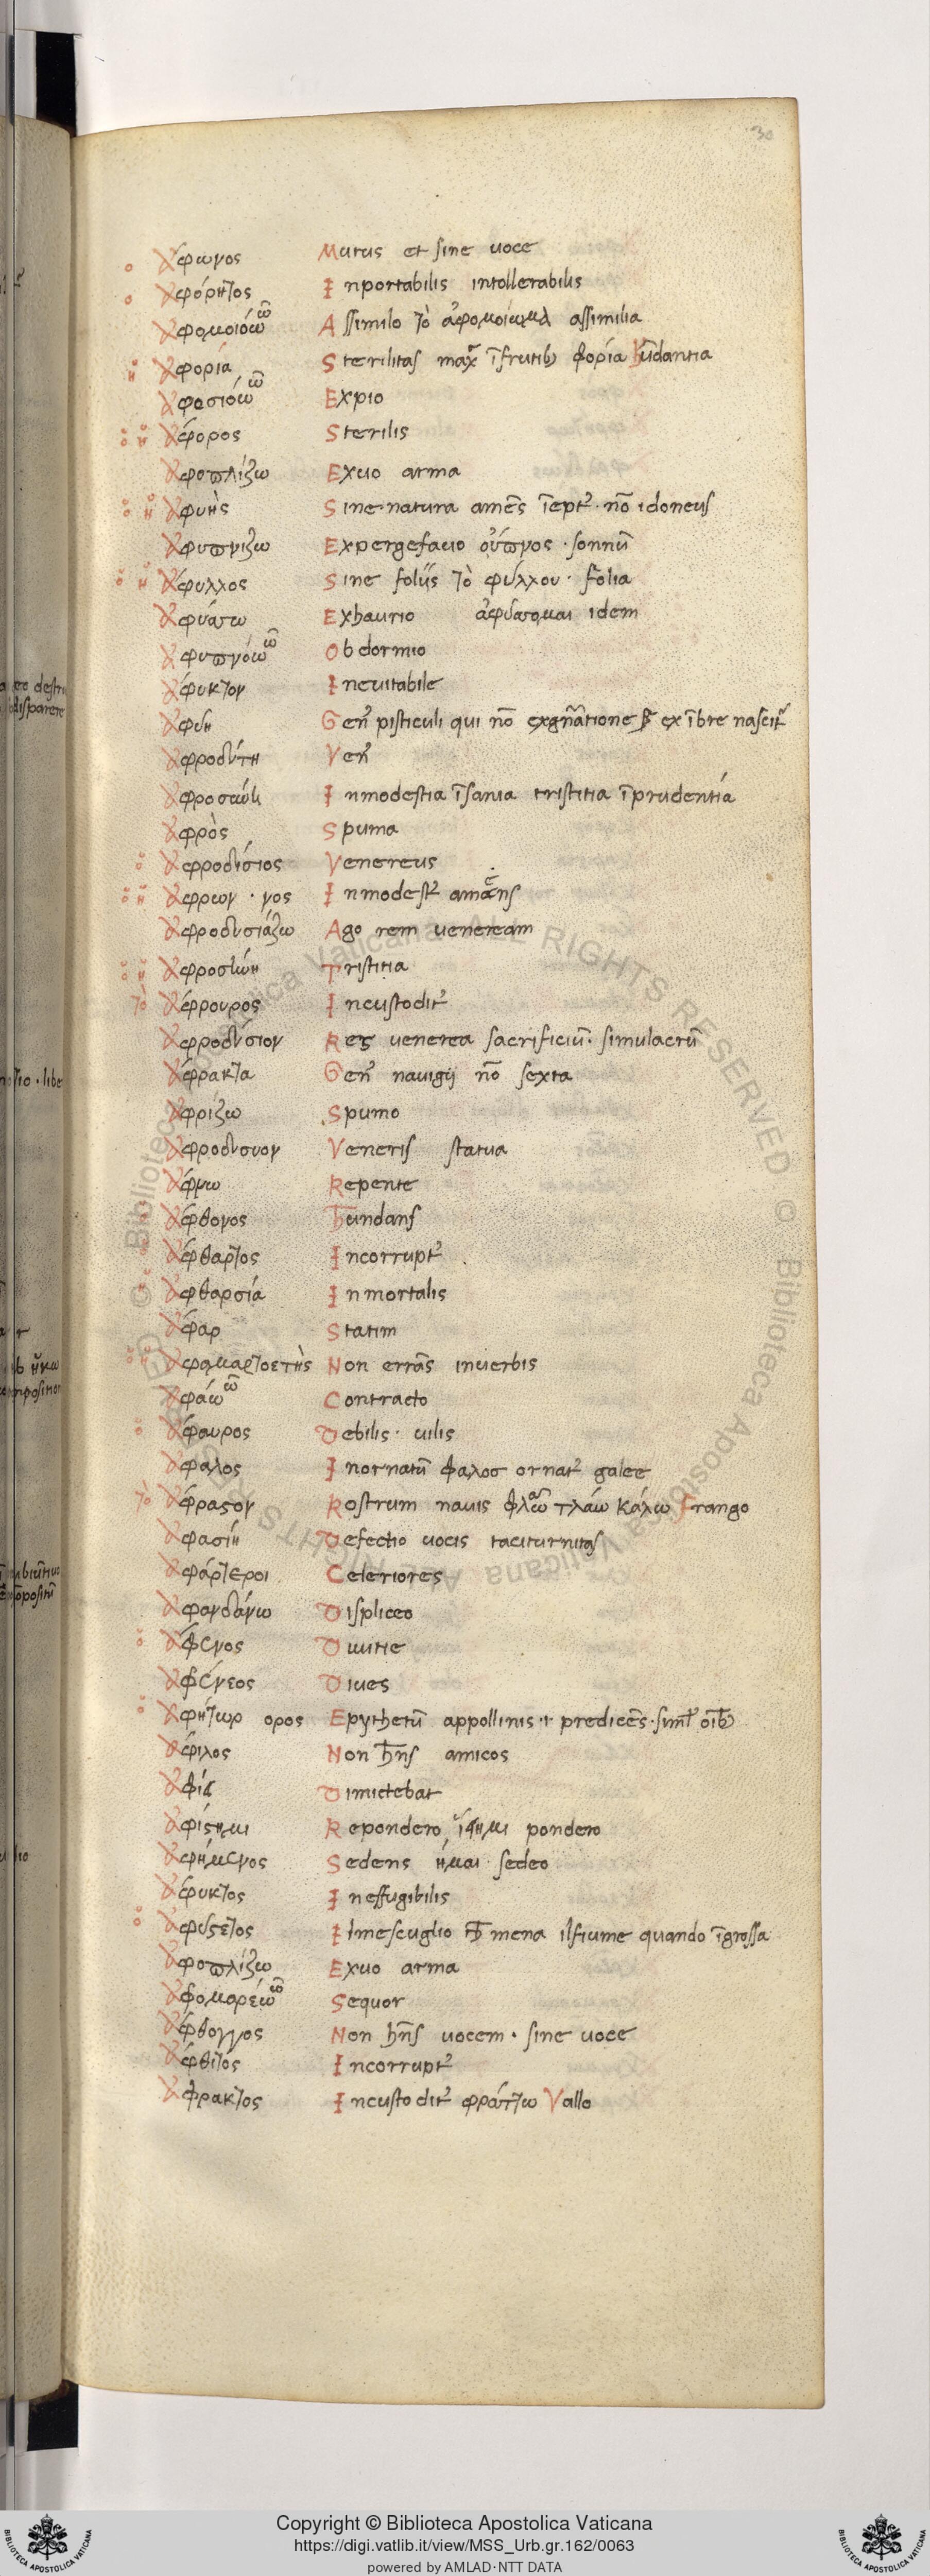 30
ὁ Ἄφωνος Mutus et sine uoce
ὁ Ἀφόρητος Inportabilis intollerabilis
Ἀφομοιόω ῶ Assimilo τὸ ἀφομοίωμα assimilia
ἡ Ἀφορία Sterilitas max̄ ī frutib; φορία hūdantia
Ἀφοσιόω ῶ Expio
ὁ ἡ Ἄφορος Sterilis
Ἀφοπλίζω Exuo arma
ὁ ἡ Ἀφυὴς Sine natura amēs īept᾽ · nō idoneus
Ἀφυπνιζω Expergefacio οὕπνος · sonnū
ὁ ἡ Ἄφυλλος Sine folijs τὸ φύλλου · folia
Ἀφύσσω Exhaurio ἀφύσσομαι idem
Ἀφυπνόω ῶ Obdormio
Ἄφυκτον Ineuitabile
Ἀφύη Gen᾽ pisticuli qui nō ex gn̄atione s̄ ex ībre nascit᾽
Ἀφροδύτη Ven᾽
Ἀφροσύνη Inmodestia īsania tristitia īprudentia
Ἀφρὸς Spuma
ὁ Ἀφροδύσιος Venereus
ὁ ἡ Ἄφρων · νος Inmodest᾽ amens
Ἀφροδυσιάζω Ago rem ueneream
ὁ ἡ Ἀφροσύνη Tristitia
τὸ Ἄφρουρος Incustodit᾽
Ἀφροδύσιον Res uenerea sacrificiū · simulacrū
Ἄφρακτα Gen᾽ nauigij nō sexta
Ἀφρίζω Spumo
Ἀφροδυσυον Veneris statua
Ἄφνω Repente
Ἄφθονος Hūndans
Ἄφθαρτος Incorrupt᾽
Ἀφθαρσία Inmortalis
Ἄφαρ Statim
ὁ ἡ Ἀφαμαρτοετὴς Non errās inuerbis
Ἀφάω ῶ Contracto
ὁ Ἄφαυρος Debilis · uilis
Ἄφαλος Inornatū φαλοσ ornat᾽ galee
τὸ Ἄφραστον Rostrum nauis φλάω ῶ τλάω κλάω Frango
Ἀφασίη Defectio uocis taciturnitas
Ἀφάρτεροι Celeriores
Ἀφανδάνω Displiceo
ὁ Ἄφενος Diuitie
Ἀφένεος Diues
ὁ Ἀφήτωρ ορος Epythetū appollinis · i · predicēs · siml̄ oīb;
Ἄφιλος Non hn̄s amicos
Ἀφίει Dimictebat
Ἀφίστημι Repondero ἵστημι pondero
Ἀφήμενος Sedens ἧμαι · sedeo
Ἄφυκτος Ineffugibilis
ὁ Ἀφυσετος Ilmescuglio chē mena ilfiume quando īgrossa
Ἀφοπλίζω Exuo arma
Ἀφομαρέω ῶ Sequor
Ἄφθογγος Non hn̄s uocem · sine uoce
Ἄφθιτος Incorrupt᾽
Ἄφρακτος Incustodit᾽ φράττω Vallo
Copyright © Biblioteca Apostolica Vaticana
https://digi.vatlib.it/view/MSS_Urb.gr.162/0063
powered by AMLAD·NTT DATA